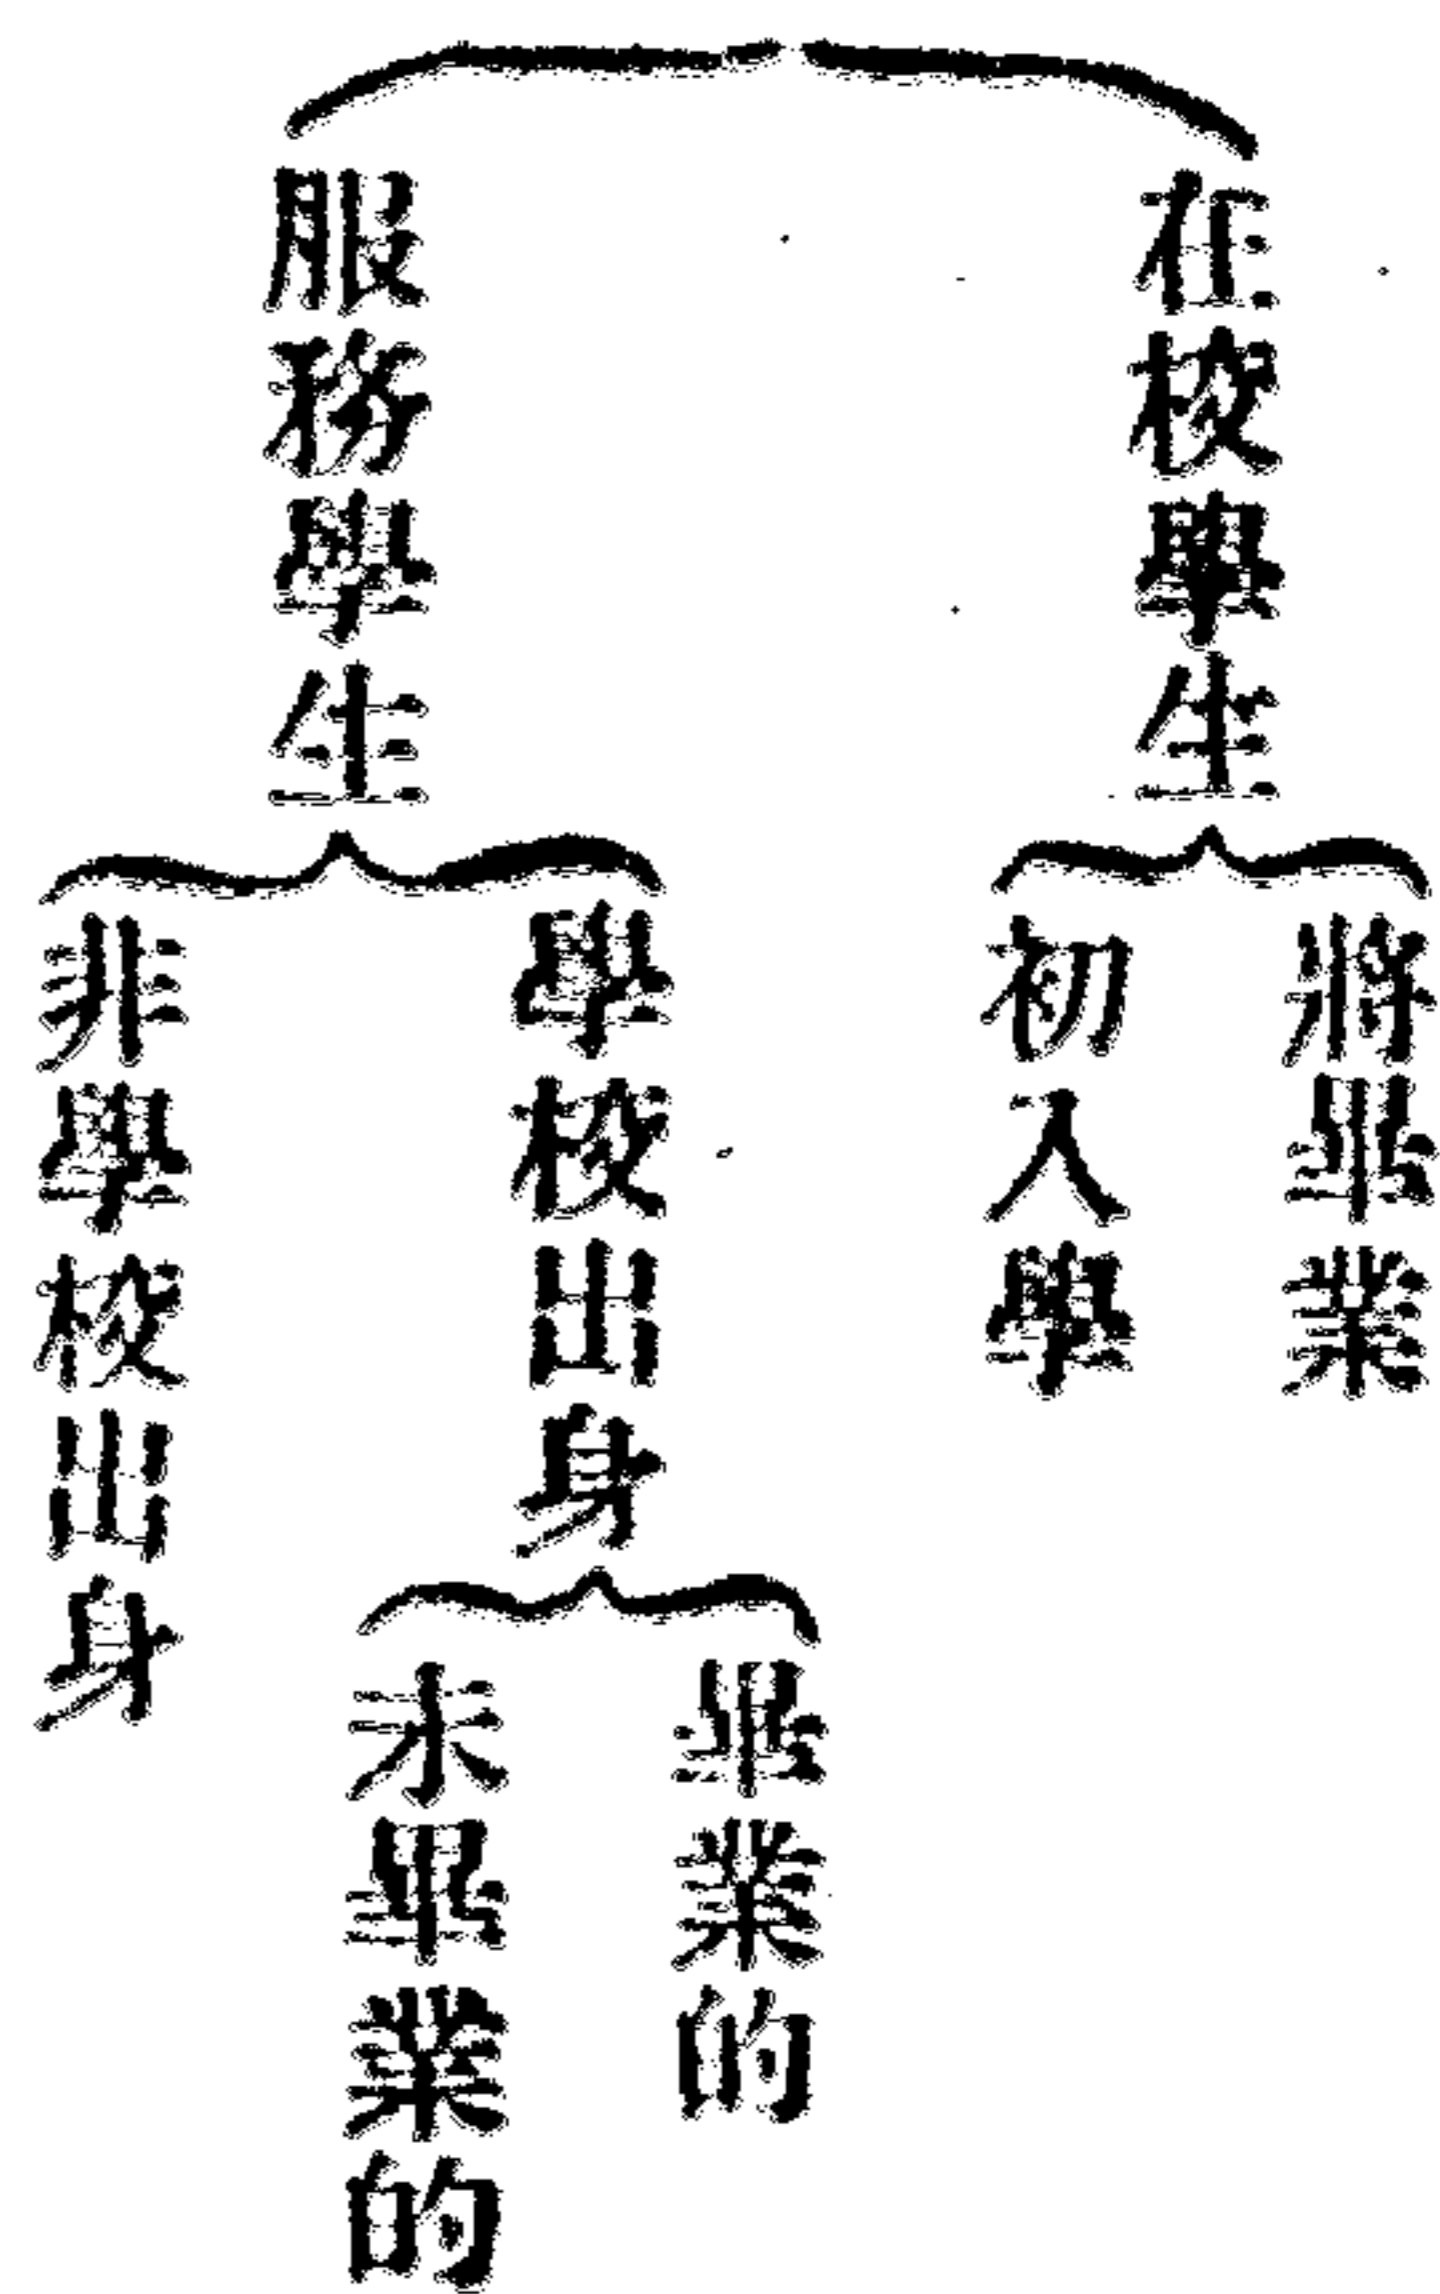 在校學生
將畢業
初入學
服務學生
學校出身
畢業的
未畢業的
非學校出身